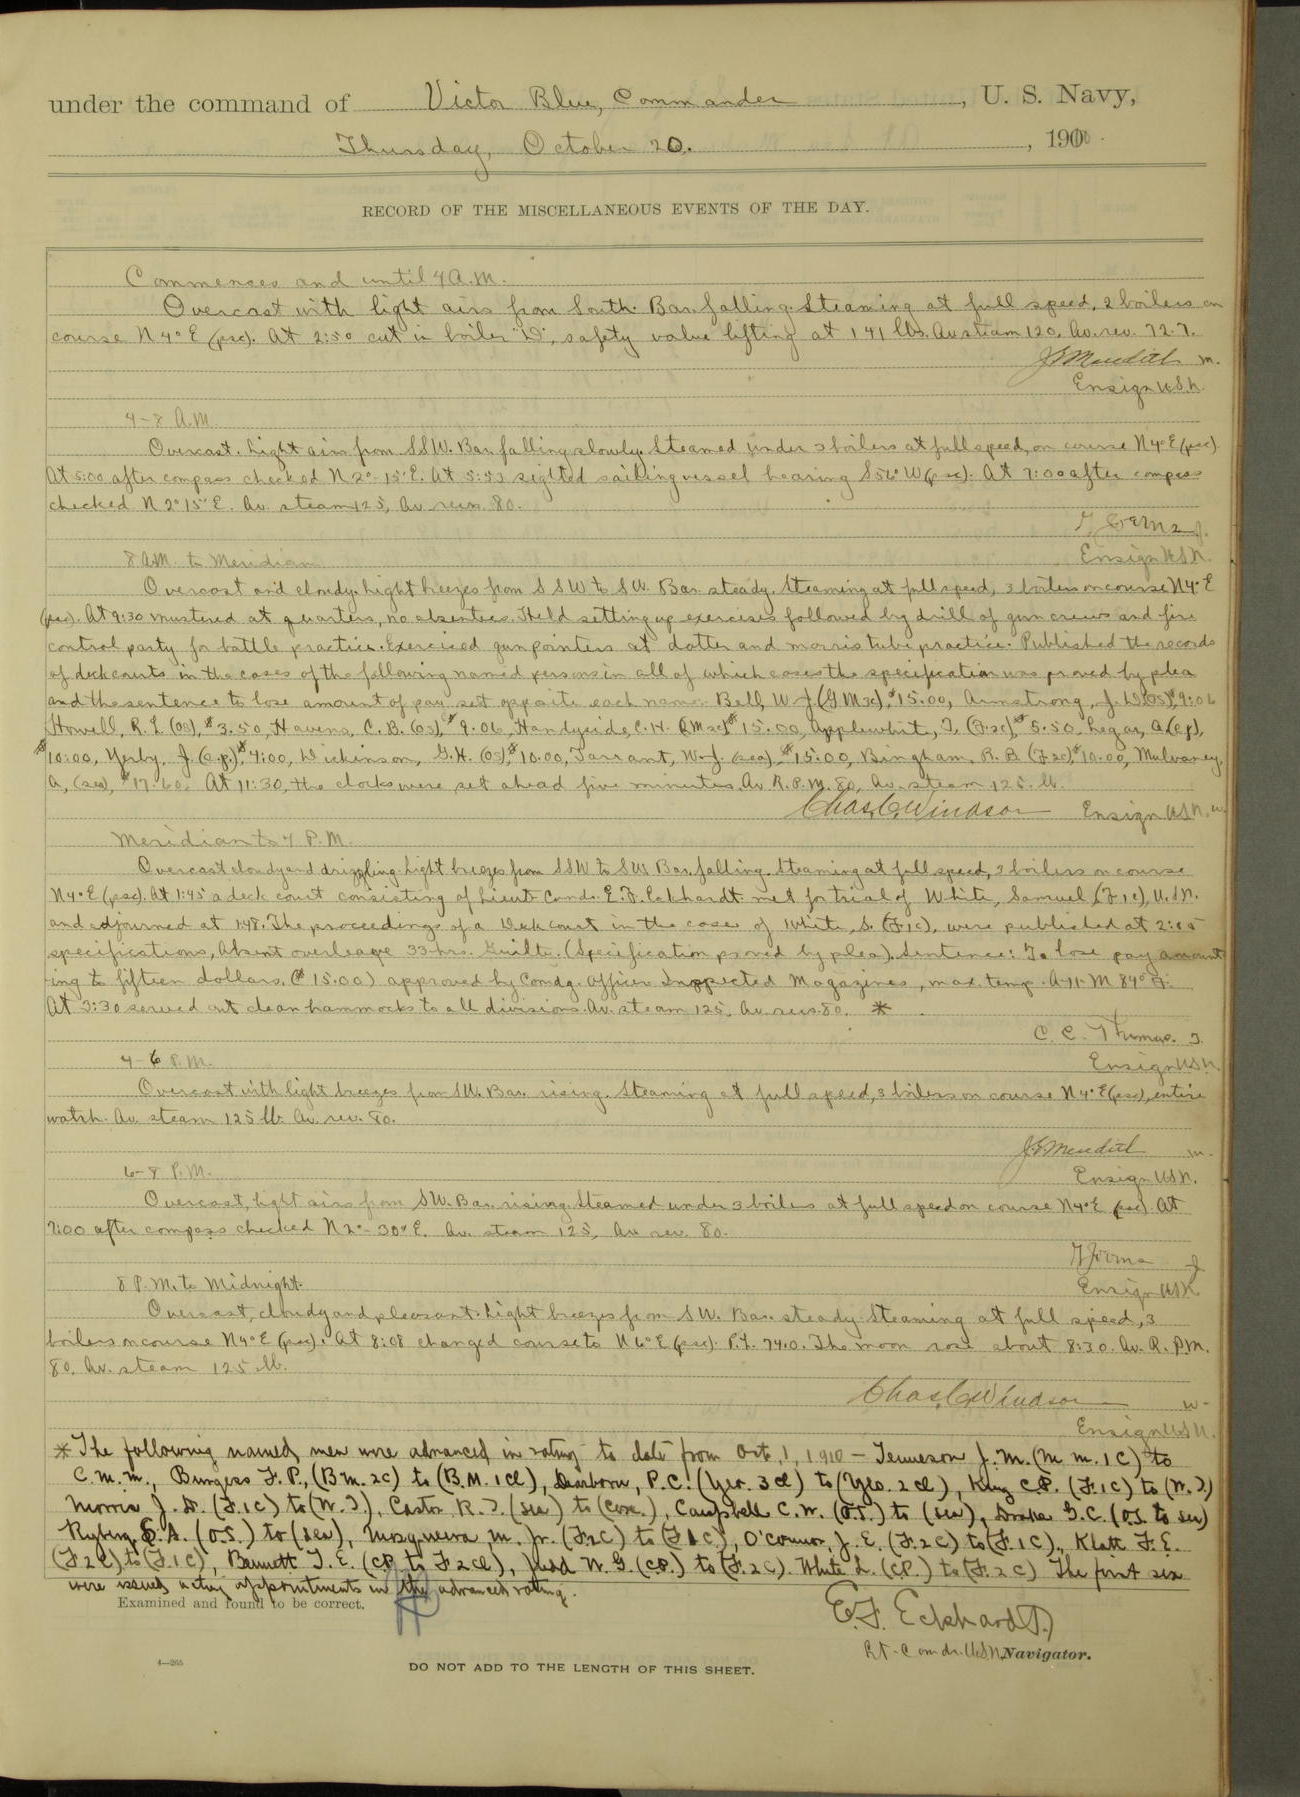 under the command of Victor Blue, Commander, U. S. Navy,
Thursday, October 20. , 1910.
RECORD OF THE MISCELLANEOUS EVENTS OF THE DAY.
Commences and until 4 A.M.
Overcast with light airs from South. Bar. falling. Steaming at full speed, 2 boilers on
course N 4° E (psc). At 2:50 cut in boiler "D", safety valve lifting at 141 lbs. Av steam 120, Av. rev. 72.7.
J Meredith m.
Ensign U.S.N.
4-8 A.M.
Overcast. Light airs from SSW. Bar. falling slowly. Steamed under 3 boilers at full speed, on course N 4° E (psc)
At 5:00 after compass checked N 2°-15' E. At 5:53 sighted sailing vessel bearing S 56° W (psc). At 7:00 after compass
checked N 2° 15' E. Av. steam 125, Av. revs. 80.
Ensign U.S.N.
8 A.M. to Meridian
Overcast and cloudy. Light breezes from SSW to SW. Bar. steady. Steaming at full speed, 3 boilers on course N 4° E
(psc). At 9:30 mustered at quarters, no absentees. Held setting up exercises followed by drill of gun crews and fire
control party for battle practice. Exercised gun pointers at dotter and morris tube practice. Published the records
of deck courts in the cases of the following named persons in all of which cases the specification was proved by plea
and the sentence to lose amount of pay set opposite each name: Bell, W J (G M 3c), $15.00, Armstrong, J. D (OS) $9.06
Howell, R. L (OS), $3.50, Havens, C. B. (OS), $9.06, Handyside, C. H. (G M 3c) $15.00, Applewhit, T, (F2c), $5.50, Legar, A (c.p),
$10:00, Yerby, J. (c.p.), $4:00, Dickinson, G. H. (OS), $10.00, Tarrant, W. J. (sea), $15:00, Bingham, R. B (F2c), $10.00, Mulvaney,
A, (sea), $17.60. At 11:30, the clocks were set ahead five minutes. Av. R.P.M. 80, Av. steam 125 lb.
Chas. C. Windsor Ensign U.S.N. w
Meridian to 4 P.M.
Overcast cloudy and drizzling. Light breezes from SSW to SW. Bar. falling. Steaming at full speed, 3 boilers on course
N 4° E (psc). At 1:45 a deck court consisting of Lieut Comdr. E. F. Eckhardt met for trial of White, Samuel, (F1c), U.S.N.
and adjourned at 1:48. The proceedings of a Deck court in the case of White, S. (F1c), were published at 2:05
specifications, Absent overleave 33-hrs. Guilty. (Specification proved by plea). Sentence: To lose pay amount
-ing to fifteen dollars. ($15.00) approved by Comdg. Officer. Inspected Magazines, max. temp. A-11-M 84° F.
At 3:30 served out clean hammocks to all divisions. Av. steam 125, Av. revs. 80. *
C. C. Thomas. T.
Ensign U.S.N.
4-6 P.M.
Overcast with light breezes from SW. Bar. rising. Steaming at full speed, 3 boilers on course N 4° E (psc), entire
watch. Av. steam 125 lb. Av. rev. 80.
J Meredith m.
Ensign U.S.N.
6-8 P.M.
Overcast, light airs from SW. Bar. rising. Steamed under 3 boilers at full speed on course N 4° E (psc). At
7:00 after compass checked N 2°-30' E. Av. steam 125, Av rev. 80.
Ensign U.S.N.
8 P.M. to Midnight.
Overcast, cloudy and pleasant. Light breezes from SW. Bar. steady. Steaming at full speed, 3
boilers on course N 4° E (psc). At 8:08 changed course to N 6° E (psc). P.L. 74.0. The moon rose about 8:30. Av. R.P.M.
80. Av. steam 125 lb.
Chas. C. Windsor w-
Ensign U.S.N.
* The following named men were advanced in rating to date from Oct, 1, 1910 - Tenneson J. M. (M m. 1C) to
C.M.M., Burgess F. P., (B m. 2C) to (B.M. 1cl), Dearborn, P.C. (Yeo. 3cl) to (Yeo. 2cl), King C.P. (F.1C) to (W.T.)
Morris J. D. (F.1C) to (W.T.), Castor R. T. (sea) to (Cox.), Campbell C. W. (O.S.) to (sea), Drake G.C. (O.S. to sea)
Ryberg S. A. (O.S.) to (sea), Mosquera M. Jr. (F2C) to (F1C), O'Connor, J. E. (F.2C) to (F.1C)., Klatt F. E.
(F2C) to (F.1C), Bennett T. E. (C.P. to F2cl), Judd W. G. (C.P.) to (F.2C). White L. (C.P.) to (F.2C) The first six
were issued acting appointments in the advanced rating.
Examined and found to be correct.
E. F. Eckhardt
Lt-Comdr. U.S.N. Navigator.
4—265
DO NOT ADD TO THE LENGTH OF THIS SHEET.